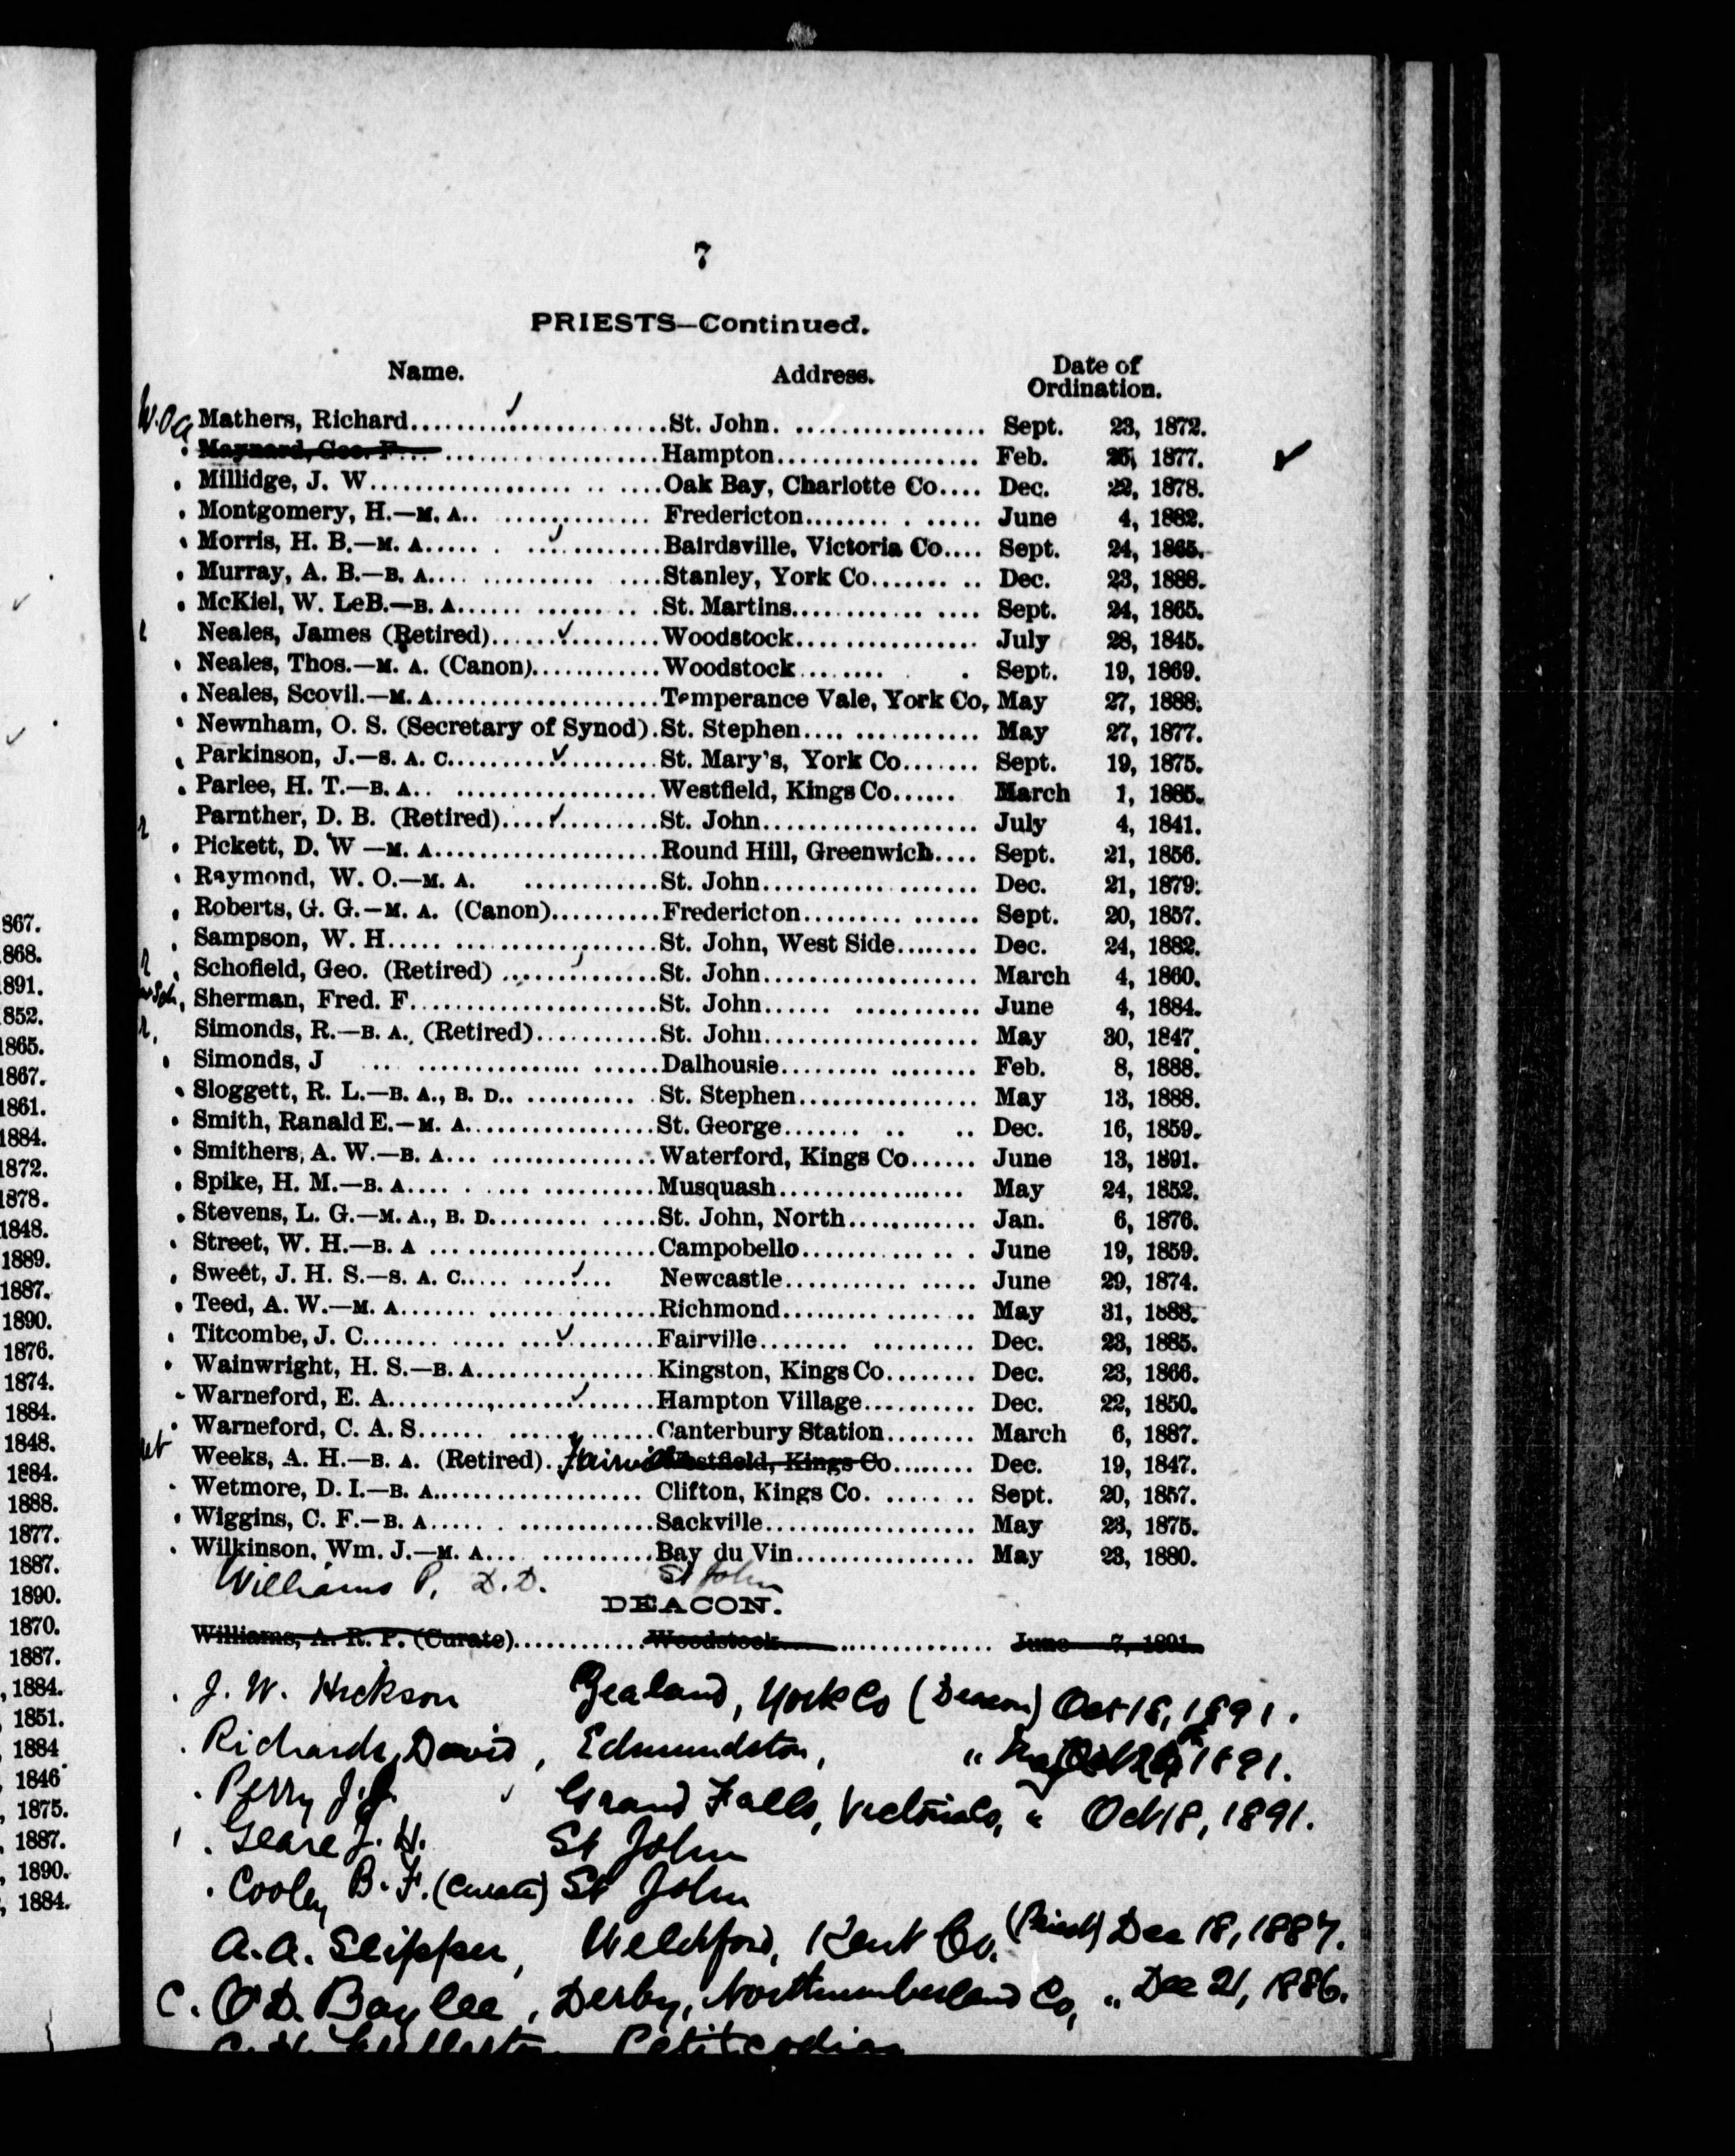 7
PRIESTS—Continued.
Name. Address. Date of Ordination.
W.O a Mathers, Richard........................St. John. .................. Sept. 23, 1872.
Maynard, Geo. F........................Hampton................... Feb. 25, 1877.
Millidge, J. W........................Oak Bay, Charlotte Co.... Dec. 22, 1878.
Montgomery, H.—M. A.. ............... Fredericton........ . ..... June 4, 1882.
Morris, H. B.—M. A..... . ............Bairdsville, Victoria Co.... Sept. 24, 1865.
Murray, A. B.—B. A.... .......... .....Stanley, York Co....... .. Dec. 23, 1888.
McKiel, W. LeB.—B. A...... ....... . .St. Martins............ .... Sept. 24, 1865.
Neales, James (Retired)................Woodstock.................. July 28, 1845.
Neales, Thos.—M. A. (Canon)............Woodstock........ . Sept. 19, 1869.
Neales, Scovil.—M. A......................Temperance Vale, York Co, May 27, 1888.
Newnham, O. S. (Secretary of Synod).St. Stephen.... ............ May 27, 1877.
Parkinson, J.—S. A. C....................St. Mary's, York Co....... Sept. 19, 1875.
Parlee, H. T.—B. A.. ....................Westfield, Kings Co...... March 1, 1885.
Parnther, D. B. (Retired)...............St. John..................... July 4, 1841.
Pickett, D. W —M. A......................Round Hill, Greenwich.... Sept. 21, 1856.
Raymond, W. O.—M. A. .............St. John..................... Dec. 21, 1879.
Roberts, G. G.—M. A. (Canon)..........Fredericton......... ...... Sept. 20, 1857.
Sampson, W. H..... ....................St. John, West Side........ Dec. 24, 1882.
Schofield, Geo. (Retired) ...............St. John..................... March 4, 1860.
Sherman, Fred. F........................St. John...... ............ June 4, 1884.
Simonds, R.—B. A., (Retired)............St. John..................... May 30, 1847.
Simonds, J .. ................ ......Dalhousie......... ........ Feb. 8, 1888.
Sloggett, R. L.—B. A., B. D.. .......... St. Stephen................. May 13, 1888.
Smith, Ranald E.—M. A...................St. George....... .. .. Dec. 16, 1859.
Smithers, A. W.—B. A... ................Waterford, Kings Co...... June 13, 1891.
Spike, H. M.—B. A.... . .... ...........Musquash.................. May 24, 1852.
Stevens, L. G.—M. A., B. D......... .....St. John, North............ Jan. 6, 1876.
Street, W. H.—B. A ... ...................Campobello............ .. . June 19, 1859.
Sweet, J. H. S.—S. A. C..... ......... Newcastle............ ..... June 29, 1874.
Teed, A. W.—M. A....... ................Richmond............. .. .. May 31, 1888.
Titcombe, J. C....... ...... ...........Fairville......... .......... Dec. 23, 1885.
Wainwright, H. S.—B. A..................Kingston, Kings Co........ Dec. 23, 1866.
Warneford, E. A...........................Hampton Village........... Dec. 22, 1850.
Warneford, C. A. S...... ...............Canterbury Station........ March 6, 1887.
Weeks, A. H.—B. A. (Retired). Westfield, Kings Co........ Dec. 19, 1847.
Wetmore, D. I.—B. A..................... Clifton, Kings Co. ........ Sept. 20, 1857.
Wiggins, C. F.—B. A..... . .............Sackville..................... May 23, 1875.
Wilkinson, Wm. J.—M. A.... ...........Bay du Vin................. May 23, 1880.
Williams P, D.D. St John
DEACON.
Williams, A. R. P. (Curate).............Woodstock.................... June 7, 1891.
J. W. Hickson Zealand, York Co (Deacon) Oct 18, 1891.
Richards, David, Edmundston, " 1891.
Perry J. Grand Falls, Victoria Co, " Oct 18, 1891.
Geare J. H. St John
Cooley B. F. (Curate) St John
A. A. Slipper, Weldford, Kent Co. (Priest) Dec 18, 1887.
C. O'D. Baylee, Derby, Northumberland Co, " Dec 21, 1886.
Petitcodiac
867.
868.
891.
852.
1865.
1867.
1861.
1884.
1872.
1878.
1848.
1889.
1887.
1890.
1876.
1874.
1884.
1848.
1884.
1888.
1877.
1887.
1890.
1870.
1887.
, 1884.
1851.
1884
1846
1875.
, 1887.
, 1890.
, 1884.